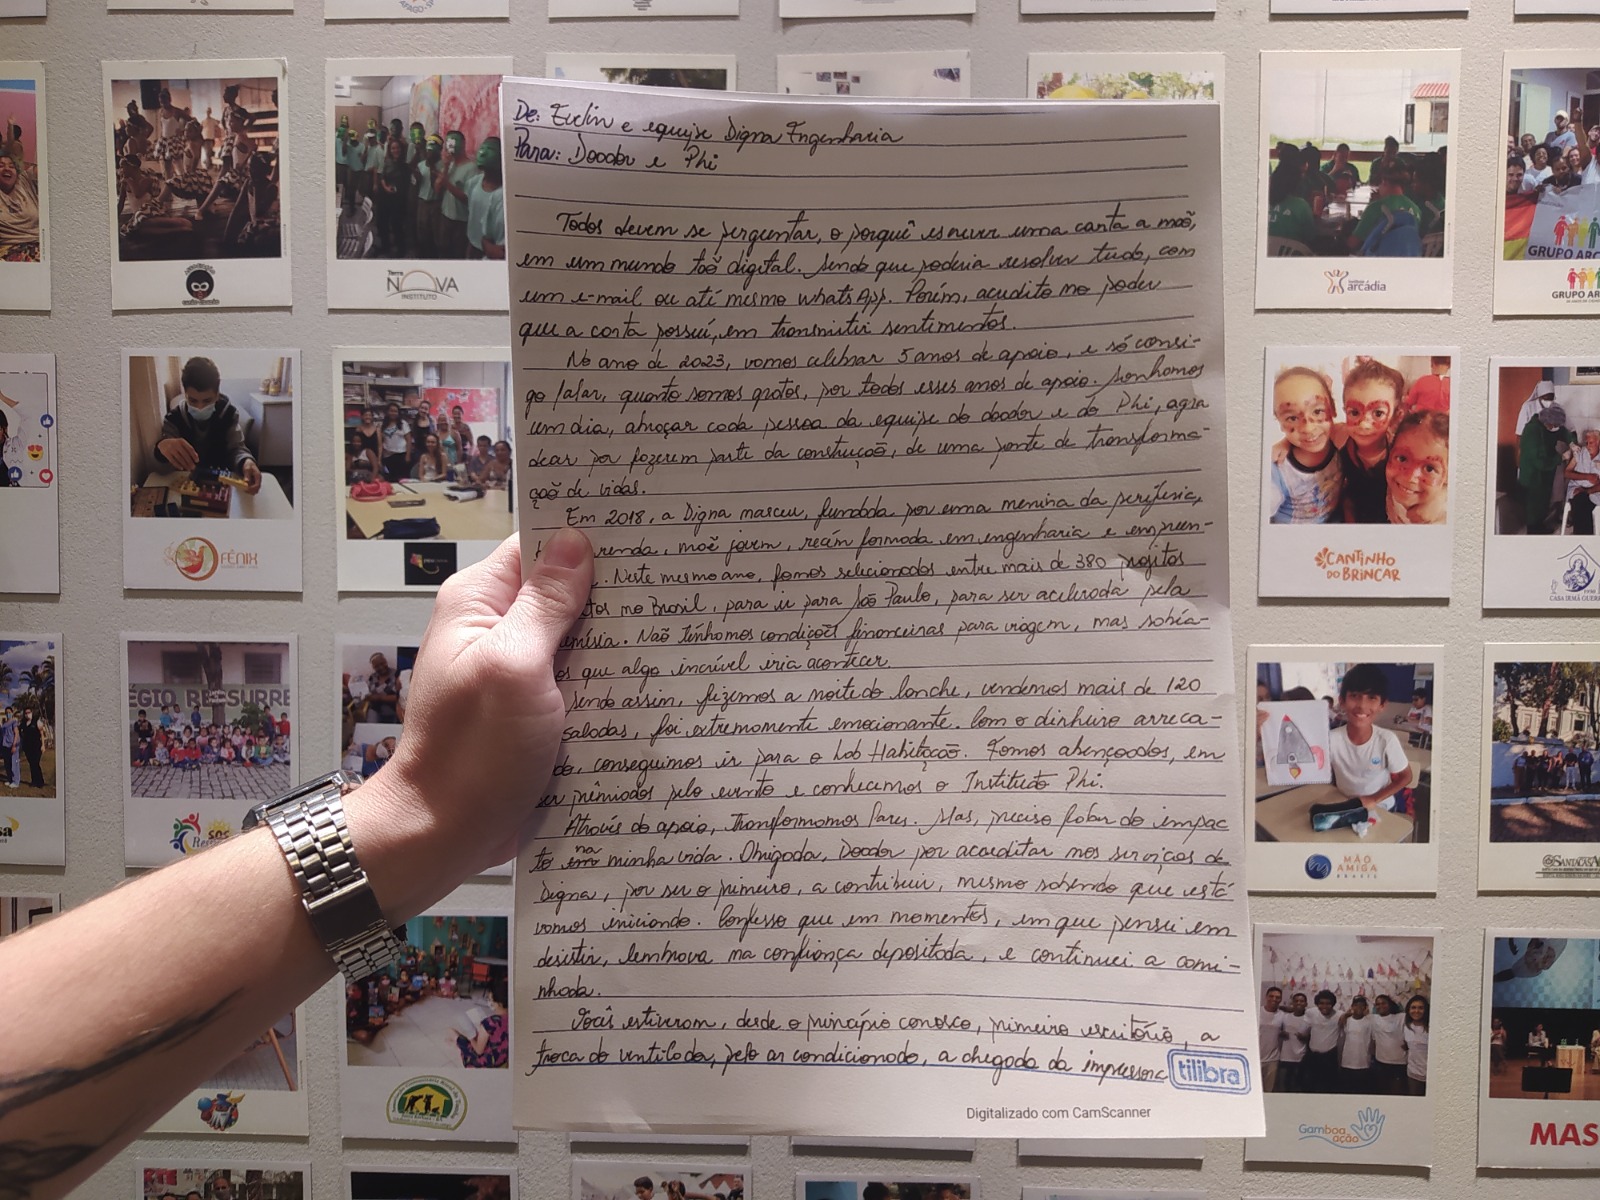 De: Evelin e equipe Digna Engenharia
Para: Doador e Phi
Todos devem se perguntar, o porquê escrever uma carta a mão,
em um mundo tão digital. Sendo que poderia resolver tudo, com
um e-mail ou até mesmo WhatsApp. Porém, acredito no poder
que a carta possuí, em transmitir sentimentos.
No ano de 2023, vamos celebrar 5 anos de apoio, e só consi-
go falar, quanto somos gratos, por todos esses anos de apoio. Sonhamos
um dia, abraçar cada pessoa da equipe do doador e do Phi, agra
decer por fazerem parte da construção, de uma ponte de transforma-
ção de vidas.
Em 2018, a Digna nasceu, fundada por uma menina da periferia,
renda, mãe jovem, recém formada em engenharia e empreen-
. Neste mesmo ano, fomos selecionados entre mais de 380 projetos
no Brasil, para ir para São Paulo, para ser acelerada pela
. Não tínhamos condições financeiras para viagem, mas sabía-
os que algo incrível iria acontecer.
Sendo assim, fizemos a noite do lanche, vendemos mais de 120
saladas, foi extremamente emocionante. Com o dinheiro arreca-
do, conseguimos ir para o Lab Habitação. Fomos abençoados, em
ser prêmiados pelo evento e conhecemos o Instituto Phi.
Através do apoio, transformamos lares. Mas, preciso falar do impac
to na minha vida. Obrigada, Doador por acreditar nos serviços da
Digna, por ser o primeiro, a contribuir, mesmo sabendo que está
vamos iniciando. Confesso que em momentos, em que pensei em
desistir, lembrava na confiança depositada, e continuei a cami-
nhada.
Vocês estiveram, desde o princípio conosco, primeiro escritório, a
troca do ventilador, pelo ar condicionado, a chegada da impressora
tilibra
Digitalizado com CamScanner
Terra
NOVA
INSTITUTO
FÊNIX
ÉGIO RESSURRE
SOS
arcádia
GRUPO ARC
GRUPO ARC
CANTINHO
DO BRINCAR
CASA IRMÃ GUER
MÃO
AMIGA
BRASIL
SANTACASA
Gamboa
ação
MAS